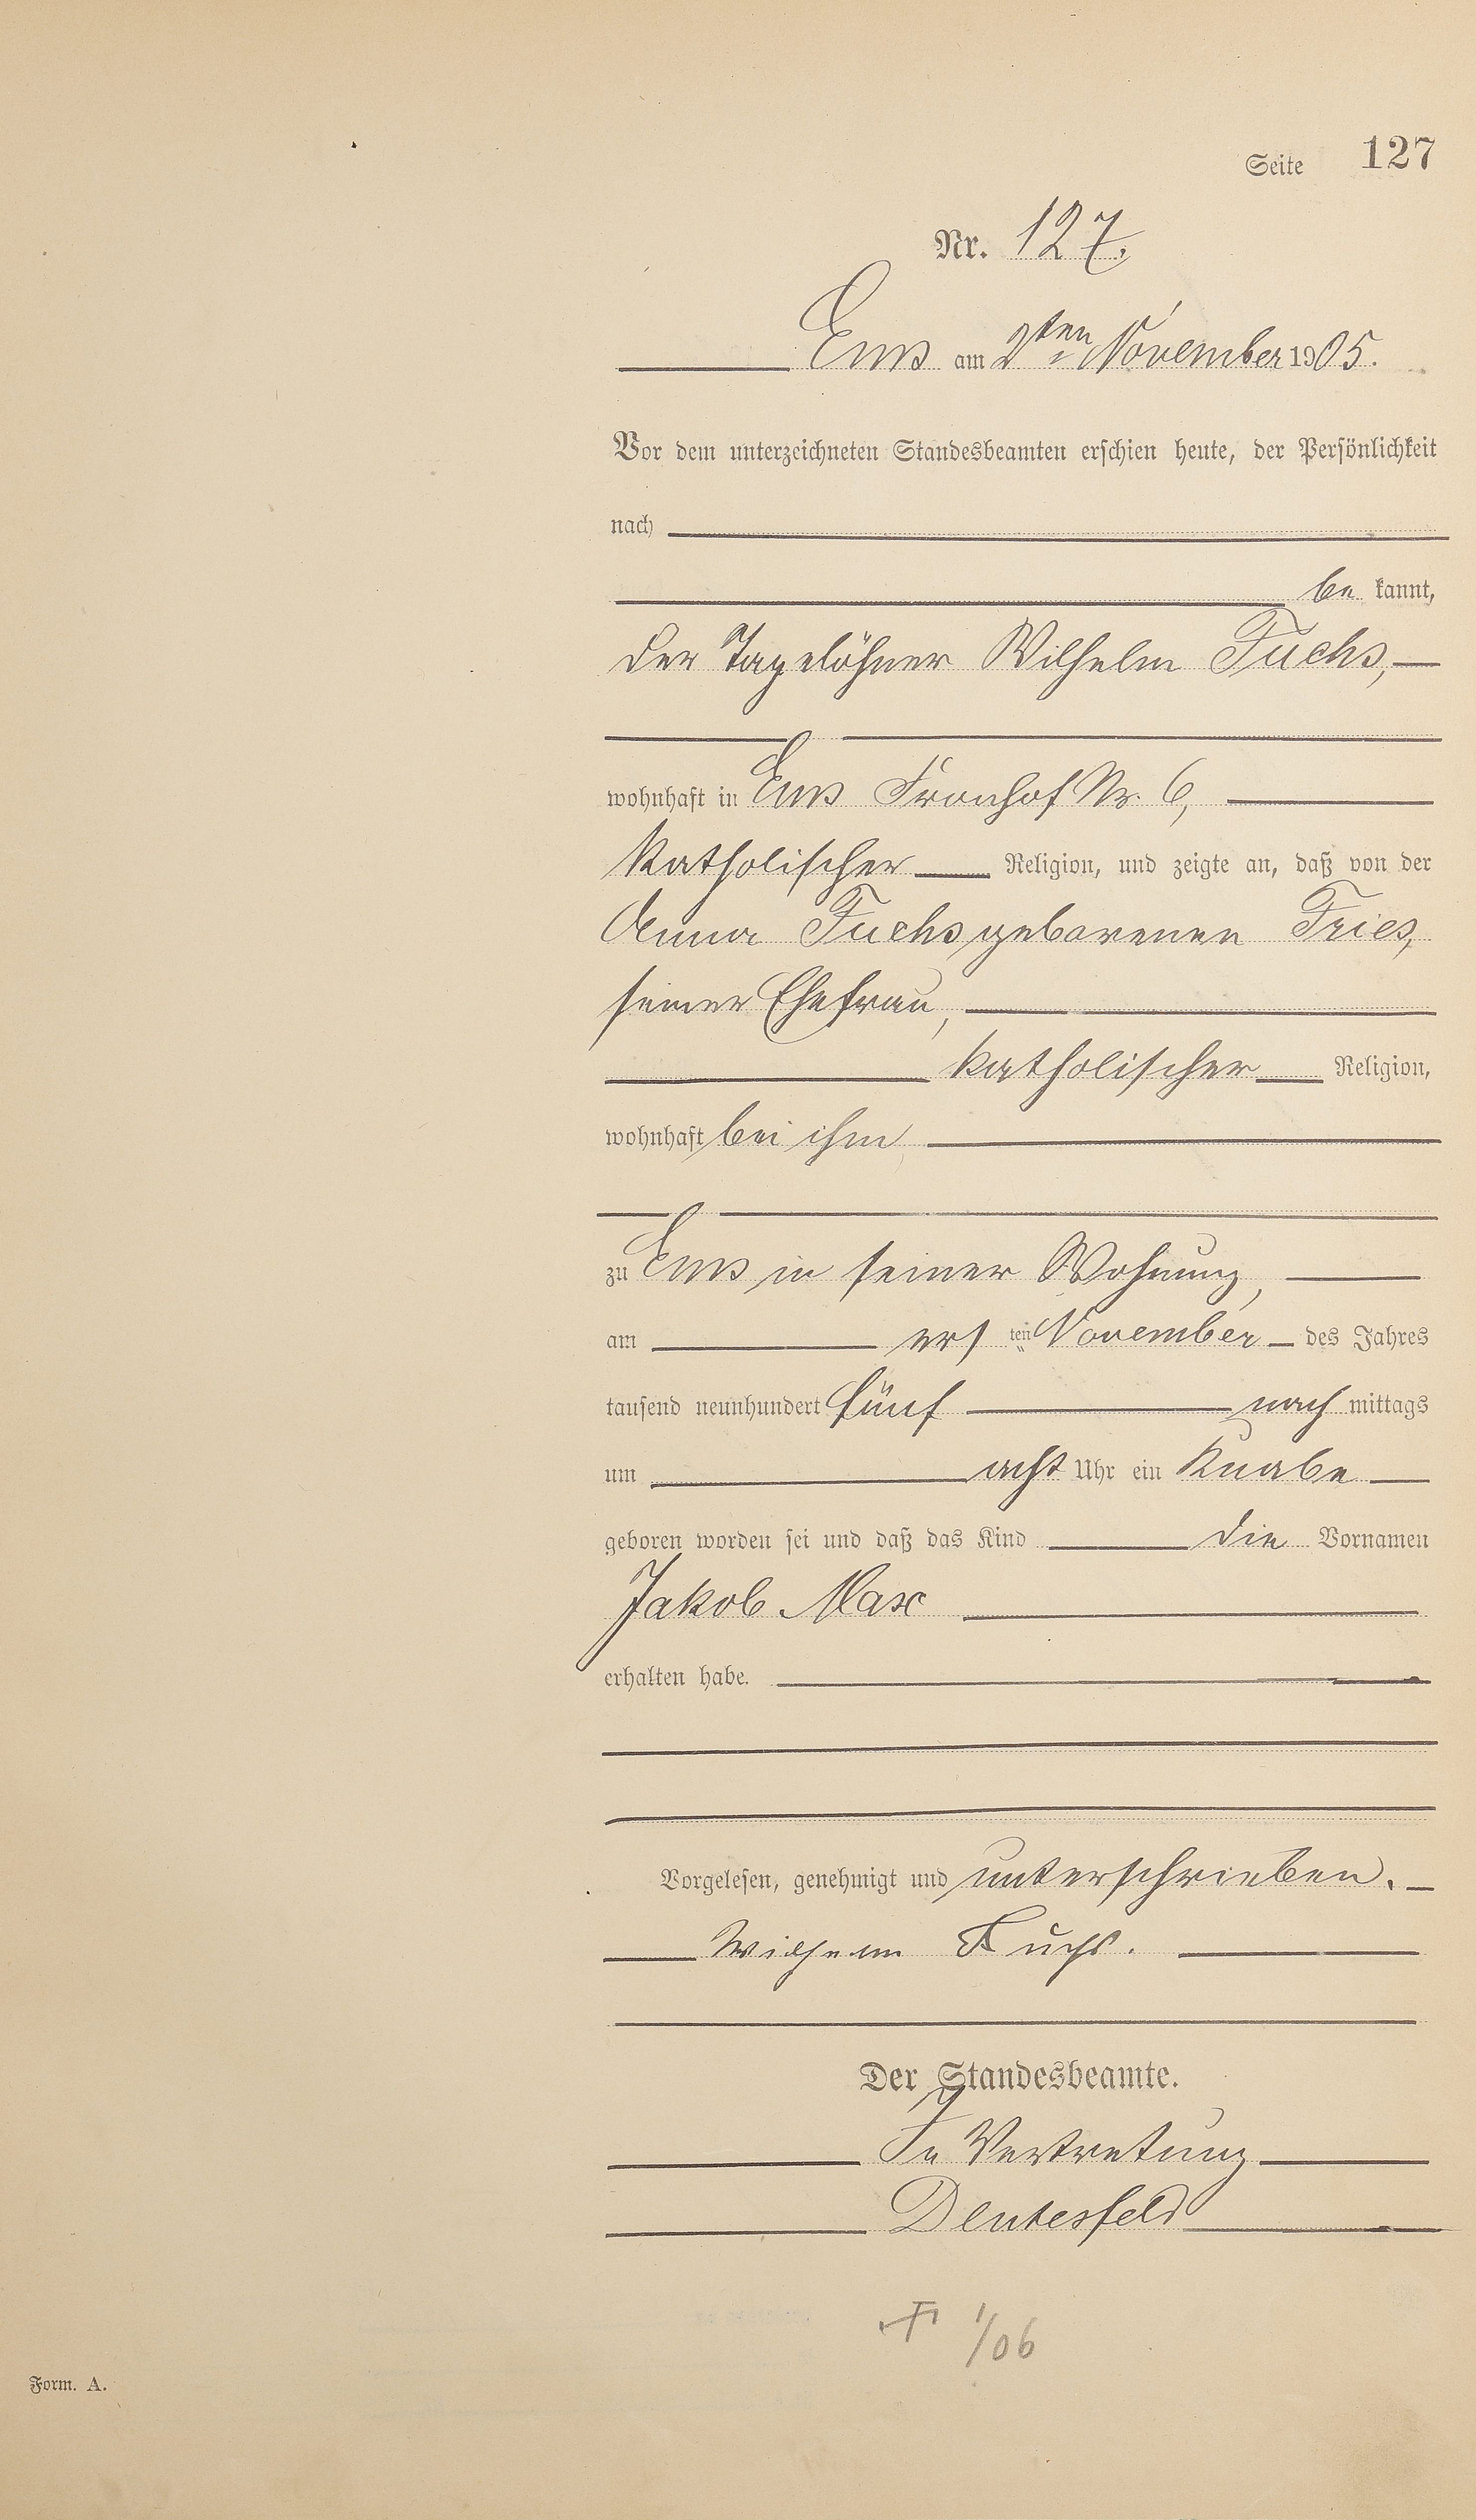 Seite 127
Nr. 127.
Ems am 2ten November 1905.
Vor dem unterzeichneten Standesbeamten erschien heute, der Persönlichkeit
nach
be kannt,
der Tagelöhner Wilhelm Fuchs,
wohnhaft in Ems Fronhof Nr. 6,
katholischer Religion, und zeigte an, daß von der
Anna Fuchs geborenen Fries,
seiner Ehefrau,
katholischer Religion,
wohnhaft bei ihm
zu Ems in seiner Wohnung,
am ersten November des Jahres
tausend neunhundert fünf nach mittags
um acht Uhr ein Knabe
geboren worden sei und daß das Kind die Vornamen
Jakob Max
erhalten habe.
Vorgelesen, genehmigt und unterschrieben.
Wilhelm Fuchs.
Der Standesbeamte.
In Vertretung
† 1/06
Form. A.